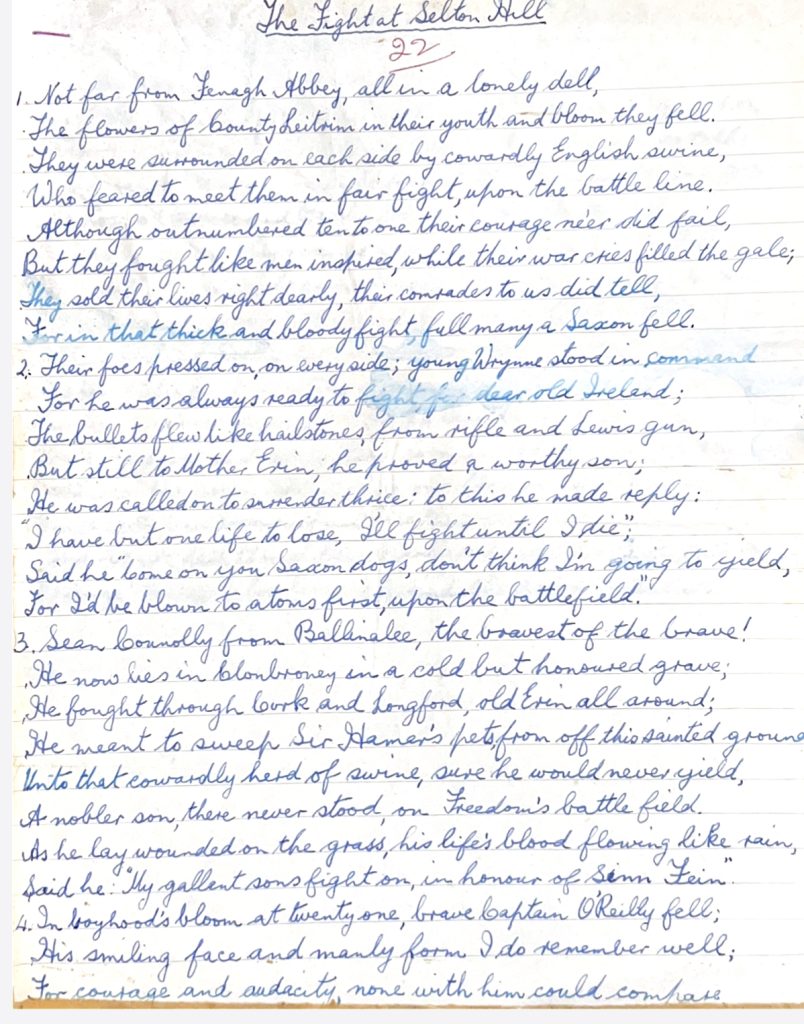 The Fight at Selton Hill
22
1. Not far from Fenagh Abbey, all in a lonely dell,
The flowers of County Leitrim in their youth and bloom they fell.
They were surrounded on each side by cowardly English swine,
Who feared to meet them in fair fight, upon the battle line.
Although outnumbered ten to one their courage ne'er did fail,
But they fought like men inspired, while their war cries filled the gale;
They sold their lives right dearly, their comrades to us did tell,
For in that thick and bloody fight, full many a Saxon fell.
2. Their foes pressed on, on every side; young Wrynne stood in command
For he was always ready to fight, for dear old Ireland;
The bullets flew like hailstones, from rifle and Lewis gun,
But still to Mother Erin, he proved a worthy son;
He was called on to surrender thrice: to this he made reply:
"I have but one life to lose, I'll fight until I die";
Said he "Come on you Saxon dogs, don't think I'm going to yield,
For I'd be blown to atoms first, upon the battlefield."
3. Sean Connolly from Ballinalee, the bravest of the brave!
He now lies in Clonbroney in a cold but honoured grave;
He fought through Cork and Longford, old Erin all around;
He meant to sweep Sir Hamar's pets, from off this sainted ground
Unto that cowardly herd of swine, sure he would never yield,
A nobler son, there never stood, on Freedom's battle field.
As he lay wounded on the grass, his life's blood flowing like rain,
Said he: "My gallent sons fight on, in honour of Sinn Fein".
4. In boyhood's bloom at twenty one, brave Captain O'Reilly fell;
His smiling face and manly form I do remember well;
For courage and audacity, none with him could compare